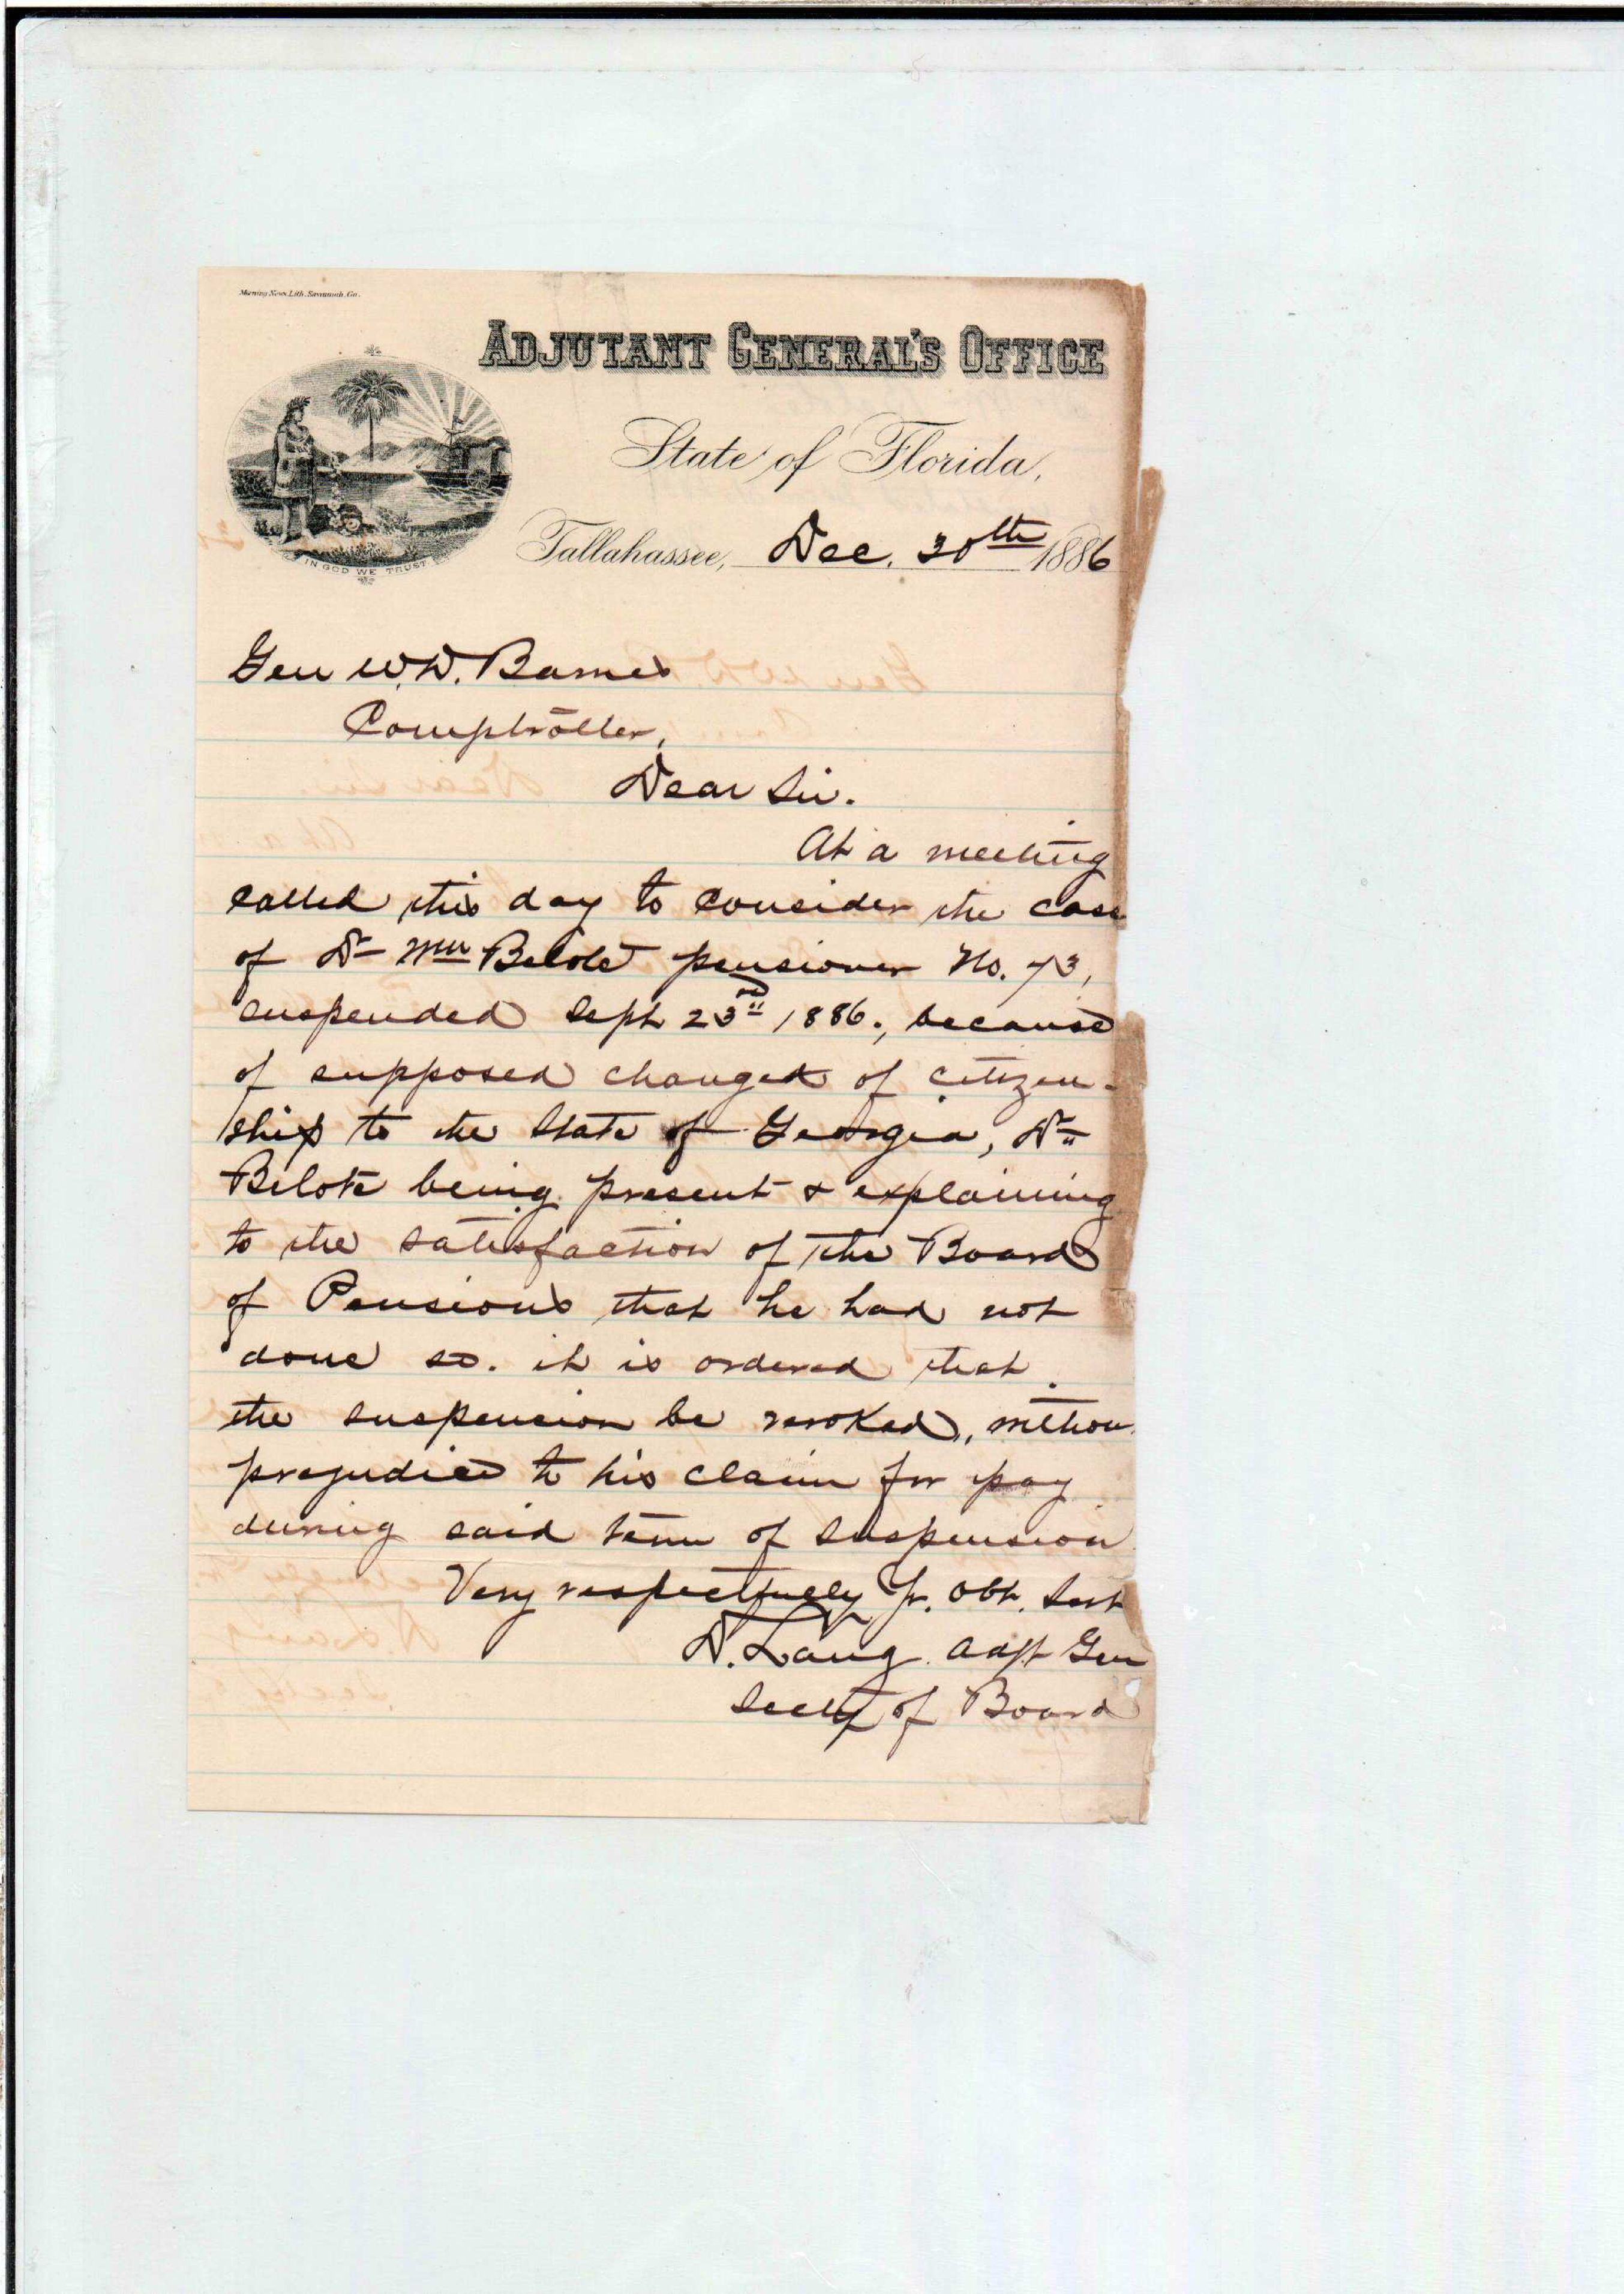 Morning News Lith. Savannah, Ga.
ADJUTANT GENERAL'S OFFICE
State of Florida,
IN GOD WE TRUST
Tallahassee, Dec. 30th 1886
Gen W. D. Barnes
Comptroller,
Dear Sir.
At a meeting
called this day to consider the case
of Dr Wm Belote pensioner No. 73,
suspended Sept 23rd 1886., because
of supposed changed of citizen-
ship to the State of Georgia, Dr
Belote being present & explaining
to the satisfaction of the Board
of Pensions that he had not
done so. it is ordered that
the suspension be revoked, withou
prejudice to his claim for pay
during said term of suspension
Very respectfully Yr. Obt. Sevt
D. Lang Adjt Gen
Secty of Board